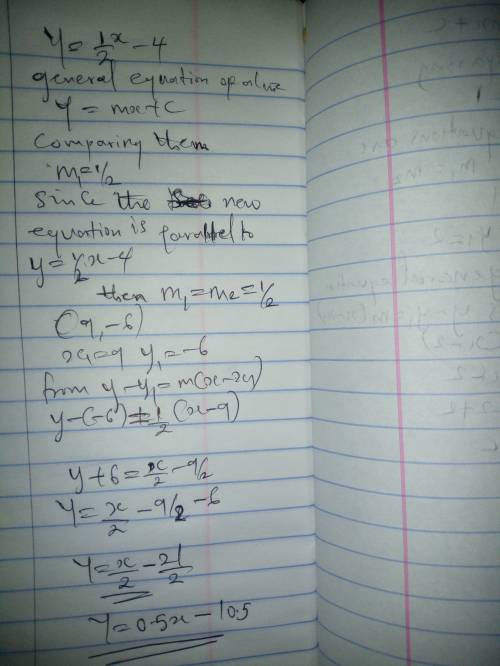 Y = 1/2 x - 4
general equation of a line
Y = mx + c
Comparing them
m1 = 1/2
Since the new
equation is parallel to
y = 1/2 x - 4
then m1 = m2 = 1/2
(9, -6)
x1 = 9 y1 = -6
from y - y1 = m(x - x1)
y - (-6) = 1/2 (x - 9)
y + 6 = x/2 - 9/2
Y = x/2 - 9/2 - 6
Y = x/2 - 21/2
Y = 0.5x - 10.5